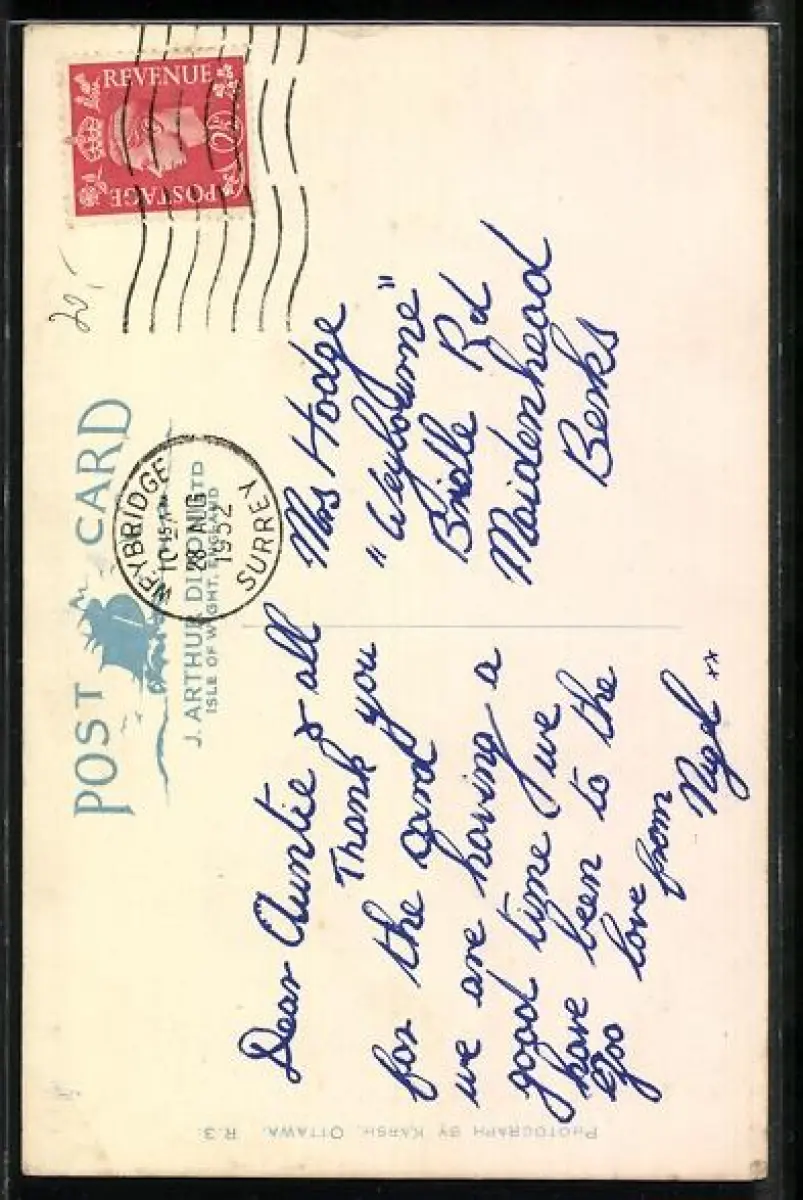 POST CARD
J. ARTHUR DIXON LTD
ISLE OF WIGHT, ENGLAND
REVENUE
POSTAGE
WEYBRIDGE
28 AUG
1952
SURREY
20,-
Dear Auntie & all
Thank you
for the card
we are having a
good time we
have been to the
Zoo
love from
Nigel xx
Mrs Hodge
"Weybourne"
Bridle Rd
Maidenhead
Berks
PHOTOGRAPH BY KARSH, OTTAWA. R.3.